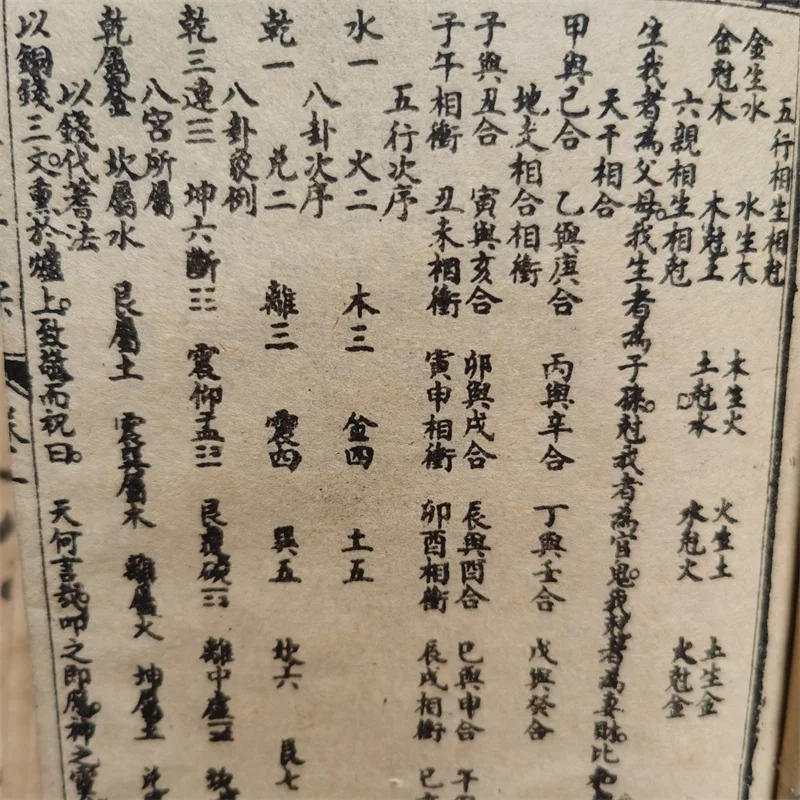 五行相生相尅
金生水　水生木　木生火　火生土　土生金
金尅木　木尅土　土尅水　水尅火　火尅金
六親相生相尅
生我者為父母。我生者為子孫。尅我者為官鬼。我尅者為妻財。比和
天干相合
甲與己合　乙與庚合　丙與辛合　丁與壬合　戊與癸合
地支相合相衝
子與丑合　寅與亥合　卯與戌合　辰與酉合　巳與申合　午
子午相衝　丑未相衝　寅申相衝　卯酉相衝　辰戌相衝　巳
五行次序
水一　火二　木三　金四　土五
八卦次序
乾一　兌二　離三　震四　巽五　坎六　艮七
八卦象例
乾三連☰　坤六斷☷　震仰盂☳　艮覆碗☶　離中虛☲　坎
八宮所屬
乾屬金　坎屬水　艮屬土　震巽屬木　離屬火　坤屬土
以錢代蓍法
以銅錢三文。熏於爐上。致敬而祝曰。天何言哉。叩之即應。神之靈